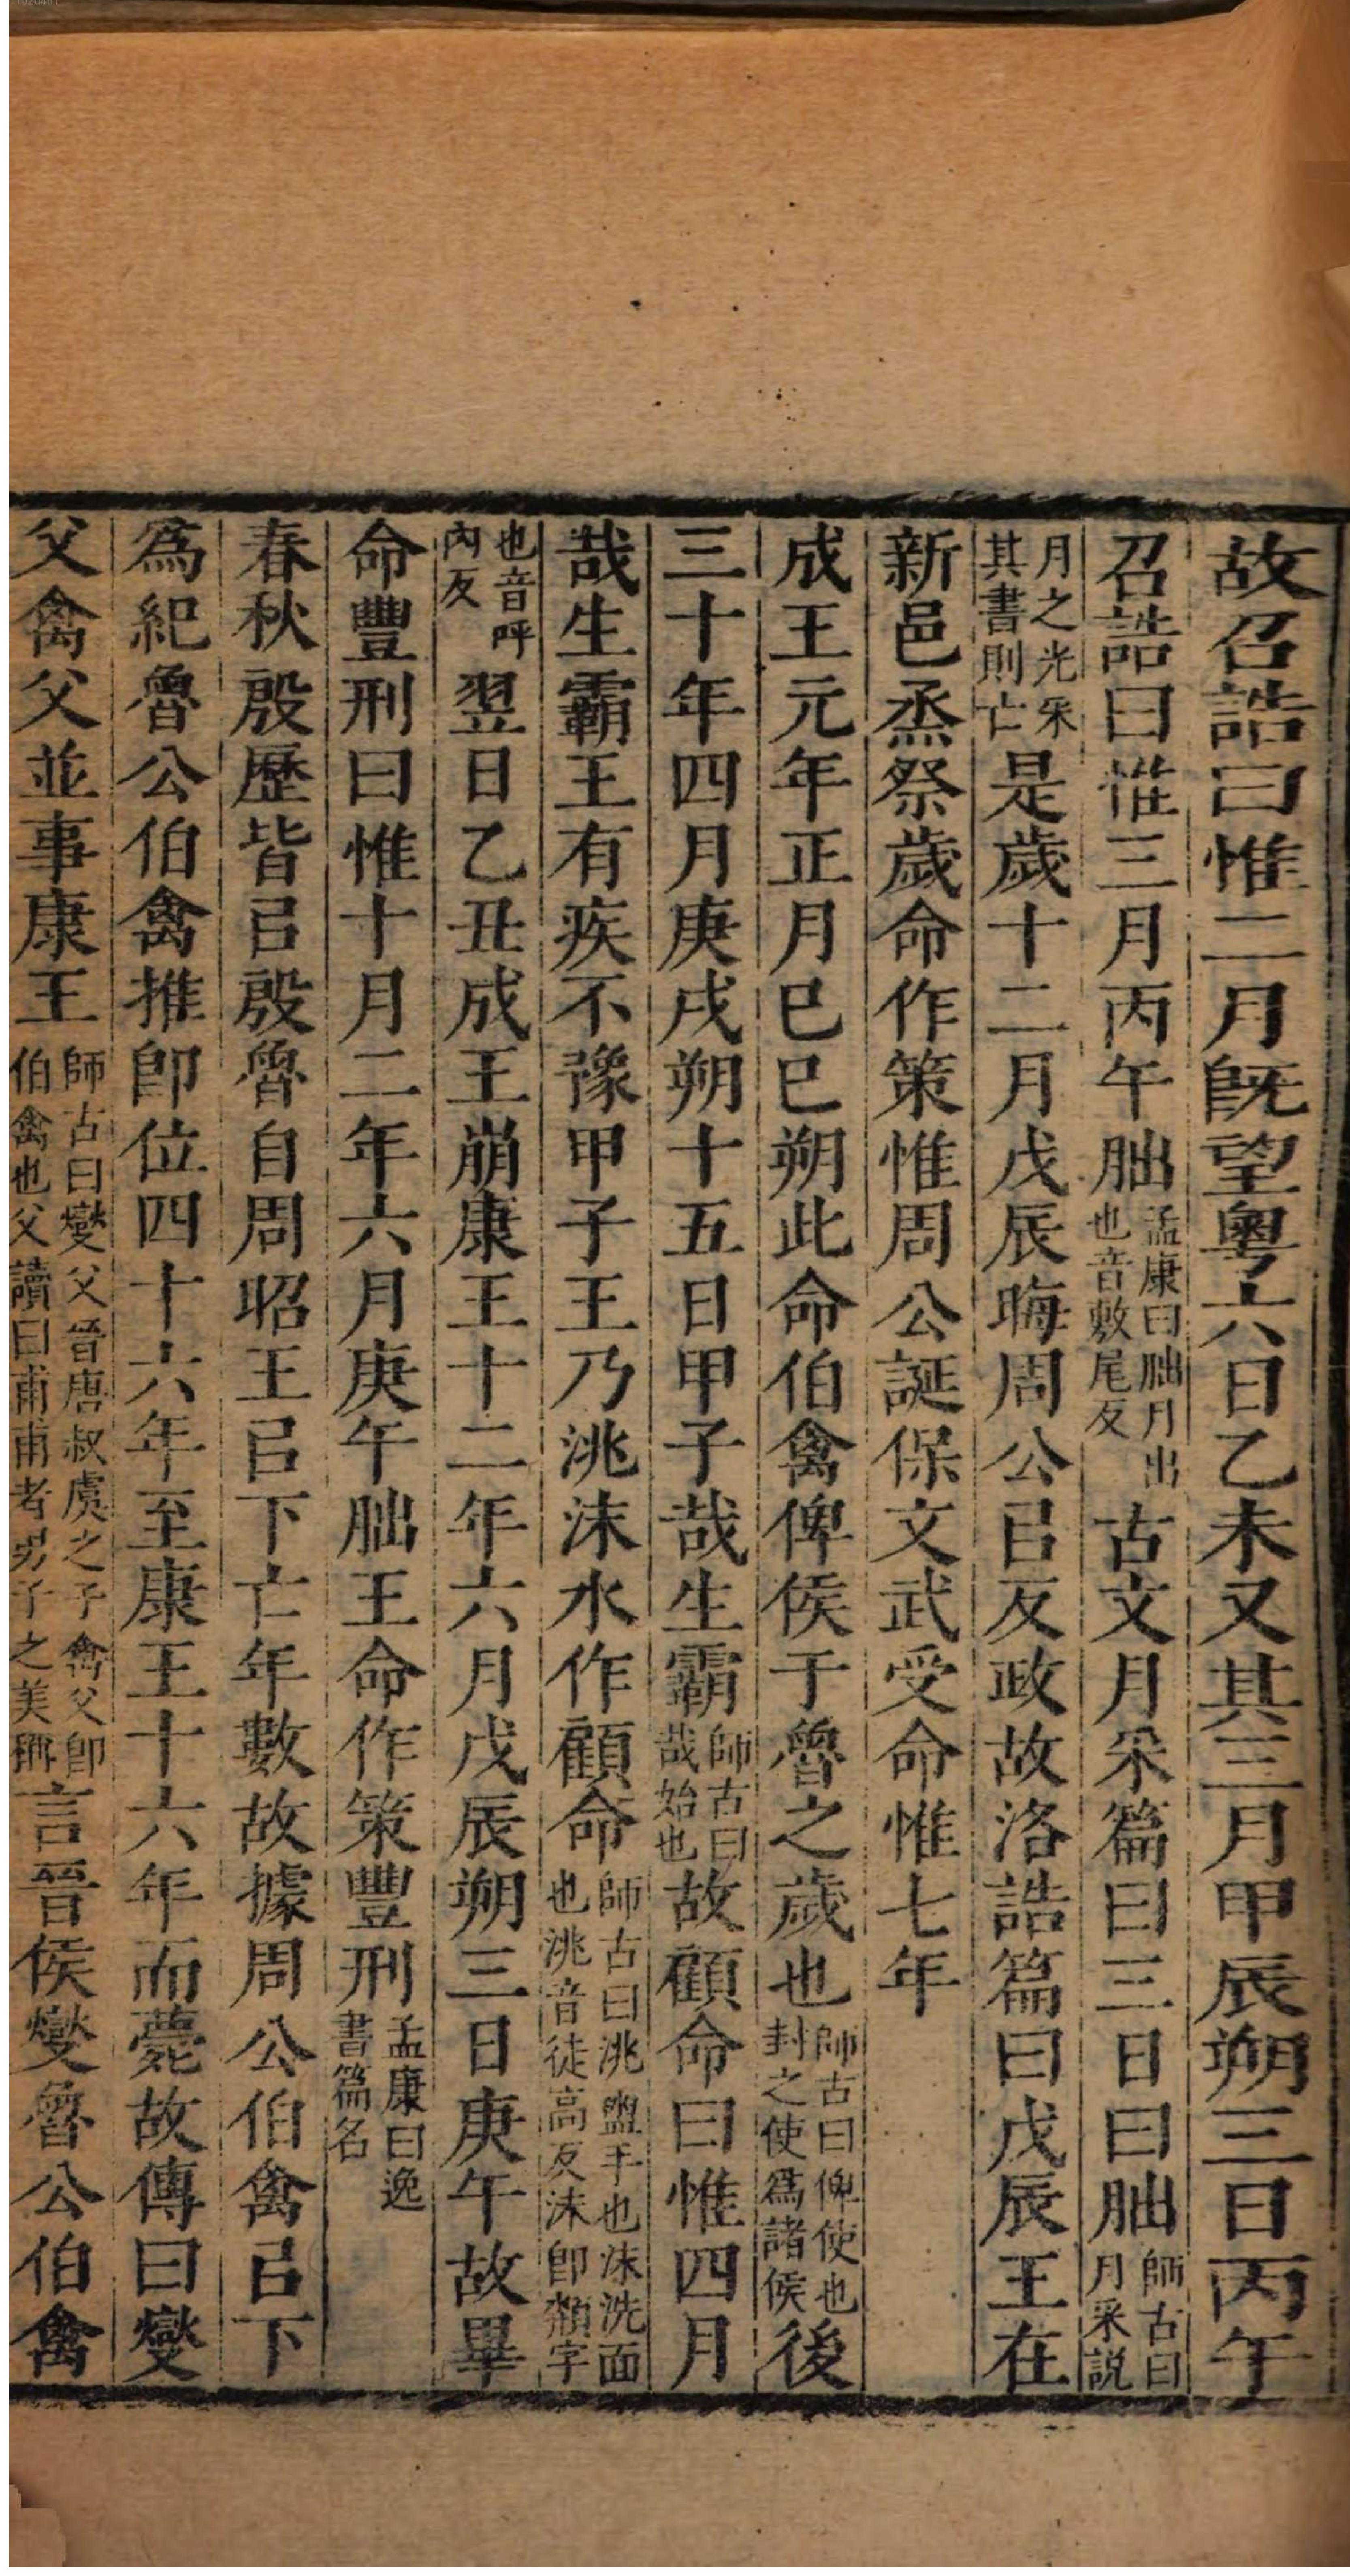 故召誥曰惟二月旣望粵六日乙未又其三月甲辰朔三日丙午
召誥曰惟三月丙午朏孟康曰朏月出也音敷尾反古文月采篇曰三日曰朏師古曰月采說
月之光采其書則亡是歲十二月戊辰晦周公㠯反政故洛誥篇曰戊辰王在
新邑烝祭歲命作策惟周公誕保文武受命惟七年
成王元年正月巳巳朔此命伯禽俾侯于魯之歲也師古曰俾使也封之使爲諸侯後
三十年四月庚戌朔十五日甲子哉生霸師古曰哉始也故顧命曰惟四月
哉生霸王有疾不豫甲子王乃洮沬水作顧命師古曰洮盥手也沬洗面也洮音徒高反沬卽頮字
也音呼內反翌日乙丑成王崩康王十二年六月戊辰朔三日庚午故畢
命豐刑曰惟十月二年六月庚午朏王命作策豐刑孟康曰逸書篇名
春秋殷歷皆㠯殷魯自周昭王㠯下亡年數故據周公伯禽㠯下
爲紀魯公伯禽推卽位四十六年至康王十六年而薨故傳曰燮
父禽父並事康王師古曰燮父晉唐叔虞之子禽父卽伯禽也父讀曰甫甫者男子之美稱言晉侯燮魯公伯禽